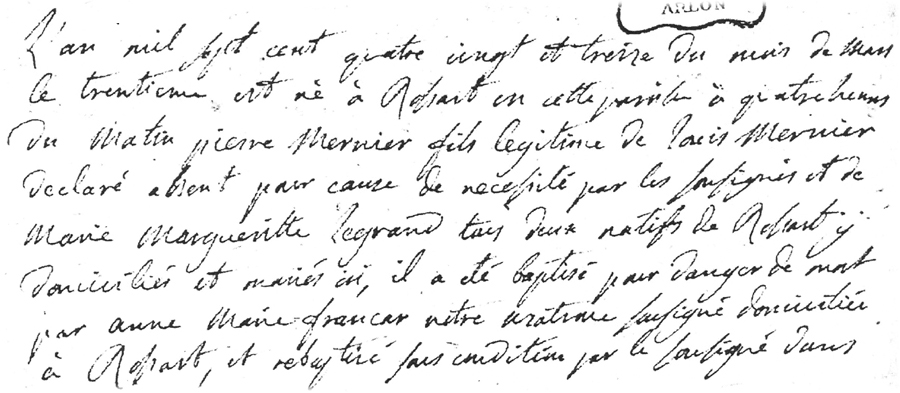 ARLON
L'an mil sept cent quatre vingt et treize du mois de mars
le trentieme est né à Rossart en cette paroisse à quatre heures
du matin pierre Mernier fils legitime de Louis Mernier
declaré absent pour cause de necessité par les soussignés et de
Marie Margueritte Legrand tous deux natifs de Rossart y
domiciliés et mariés ici, il a été baptisé pour danger de mort
par anne Marie francar notre matrone soussigné domiciliée
à Rossart, et rebaptisé sous condition par le soussigné dans